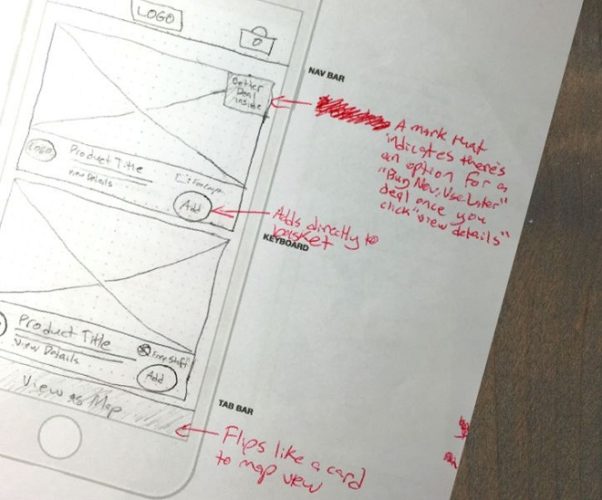 LOGO
0
NAV BAR
Better
Deal
Inside
A mark that
indicates there's
an option for a
"Buy Now, Use Later"
deal once you
click "view details"
LOGO
Product Title
View Details
Add
Adds directly to
basket
KEYBOARD
Product Title
View Details
Free Stuff
Add
View as Map
TAB BAR
Flips like a card
to map view